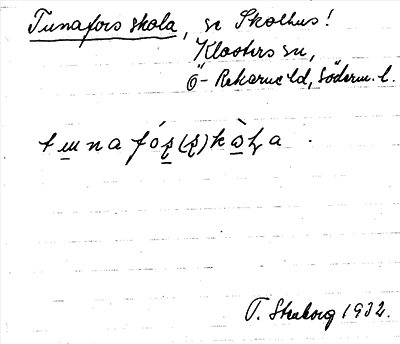 Tunafors skola, se Skolhus!
Klosters sn,
Ö-Rekarne hd, Söderm. l.
tɯnafóʂ(ʂ)kòɽa.
T. Stenborg 1932.